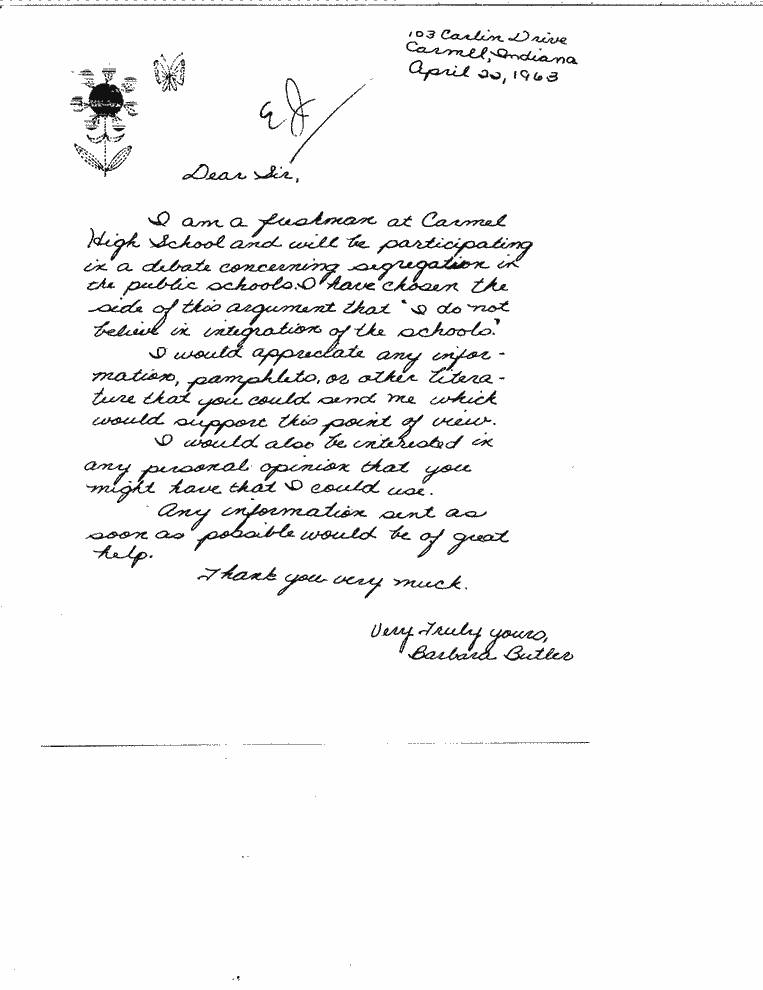 103 Carlin Drive
Carmel, Indiana
April 22, 1963
EJ
Dear Sir,
I am a freshman at Carmel
High School and will be participating
in a debate concerning segregation in
the public schools. I have chosen the
side of this argument that "I do not
believe in integration of the schools."
I would appreciate any infor-
mation, pamphlets, or other litera-
ture that you could send me which
would support this point of view.
I would also be interested in
any personal opinion that you
might have that I could use.
Any information sent as
soon as possible would be of great
help.
Thank you very much.
Very Truly yours,
Barbara Butler